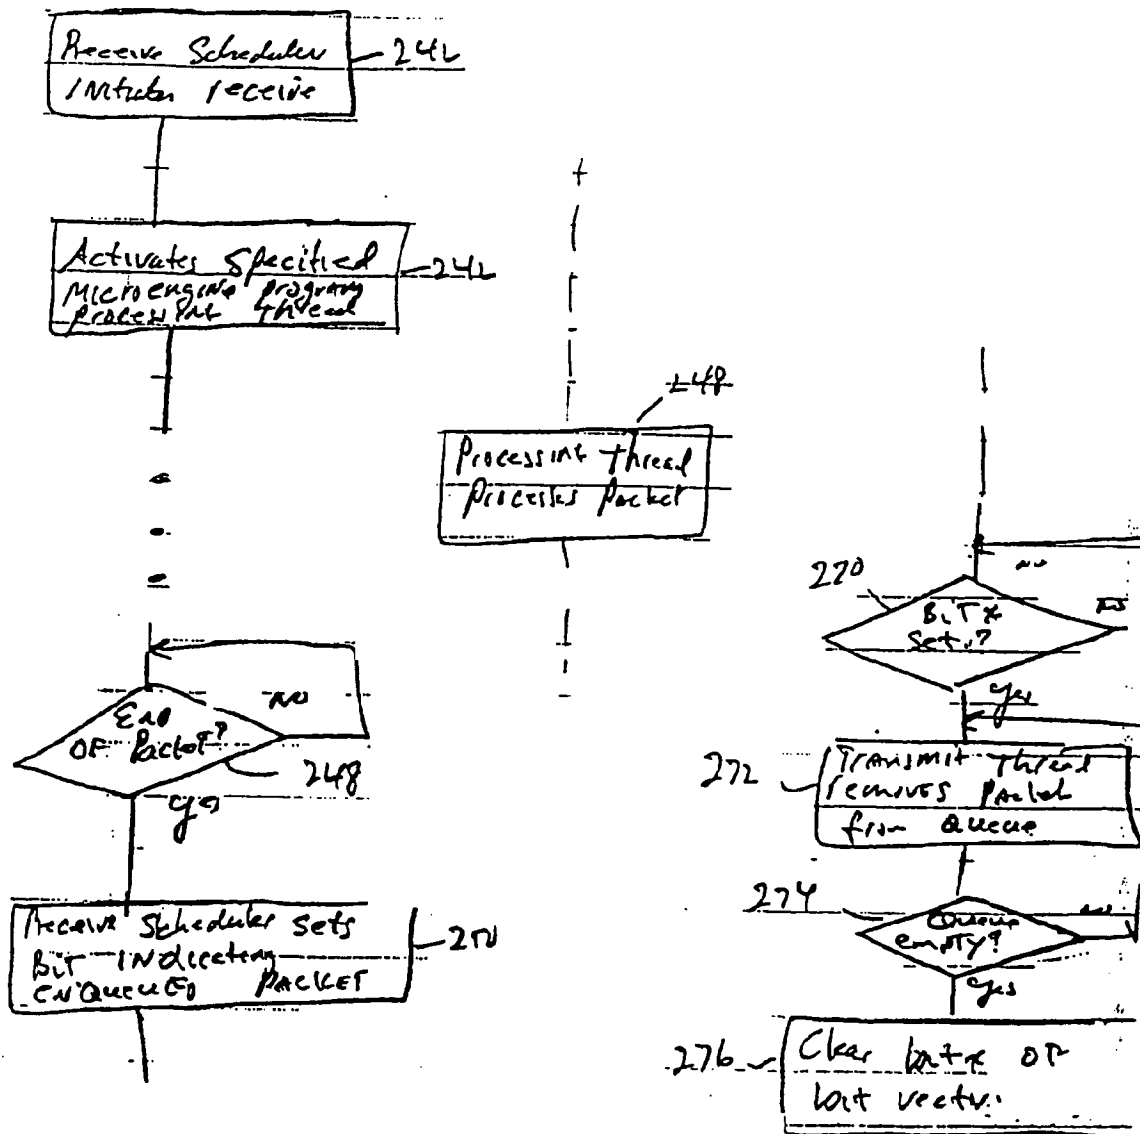 Receive Scheduler
Initiates receive
242
Activates Specified
Microengine program
processing thread
242
248
Processing thread
Processes Packet
End
OF Packet?
NO
248
yes
Receive Scheduler Sets
Bit indicating
ENQUEUED PACKET
250
270
Bit x
Set?
NO
NO
yes
272
Transmit thread
removes packet
from Queue
274
Queue
empty?
NO
yes
276
Clear bit x of
bit vector